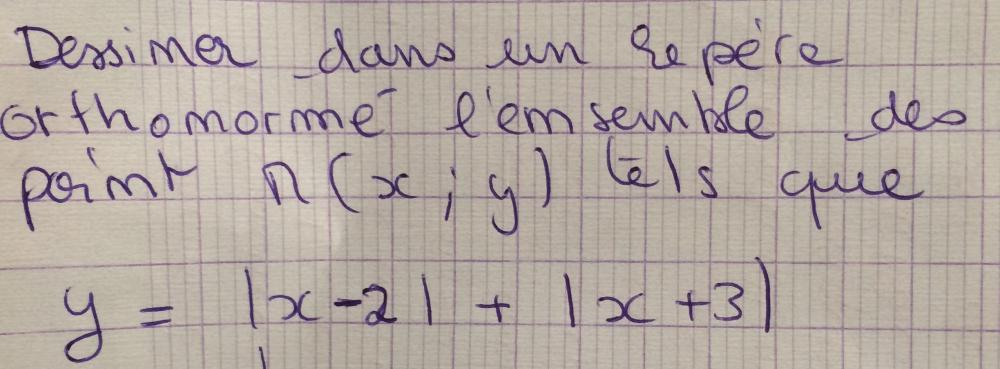 Dessiner dans un Repère
orthonormé l'ensemble des
point M(x; y) tels que
y = |x-2| + |x+3|